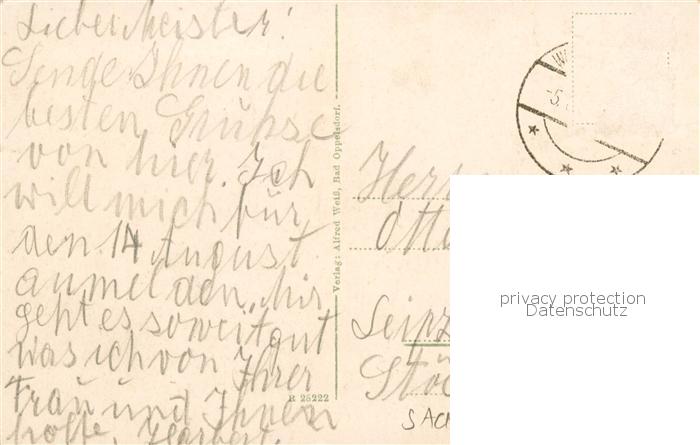 Lieber Meister!
Sende Ihnen die
besten Grühse
von hier. Ich
will mich für
den 14 August
anmelden. Mir
geht es soweit gut
was ich von Ihrer
Frau und Ihnen
hoffe. Herbert.
Verlag: Alfred Weiß, Bad Oppelsdorf.
R 25222
-5.
Herr
Otto
Leipz
Stö
SACH
privacy protection
Datenschutz